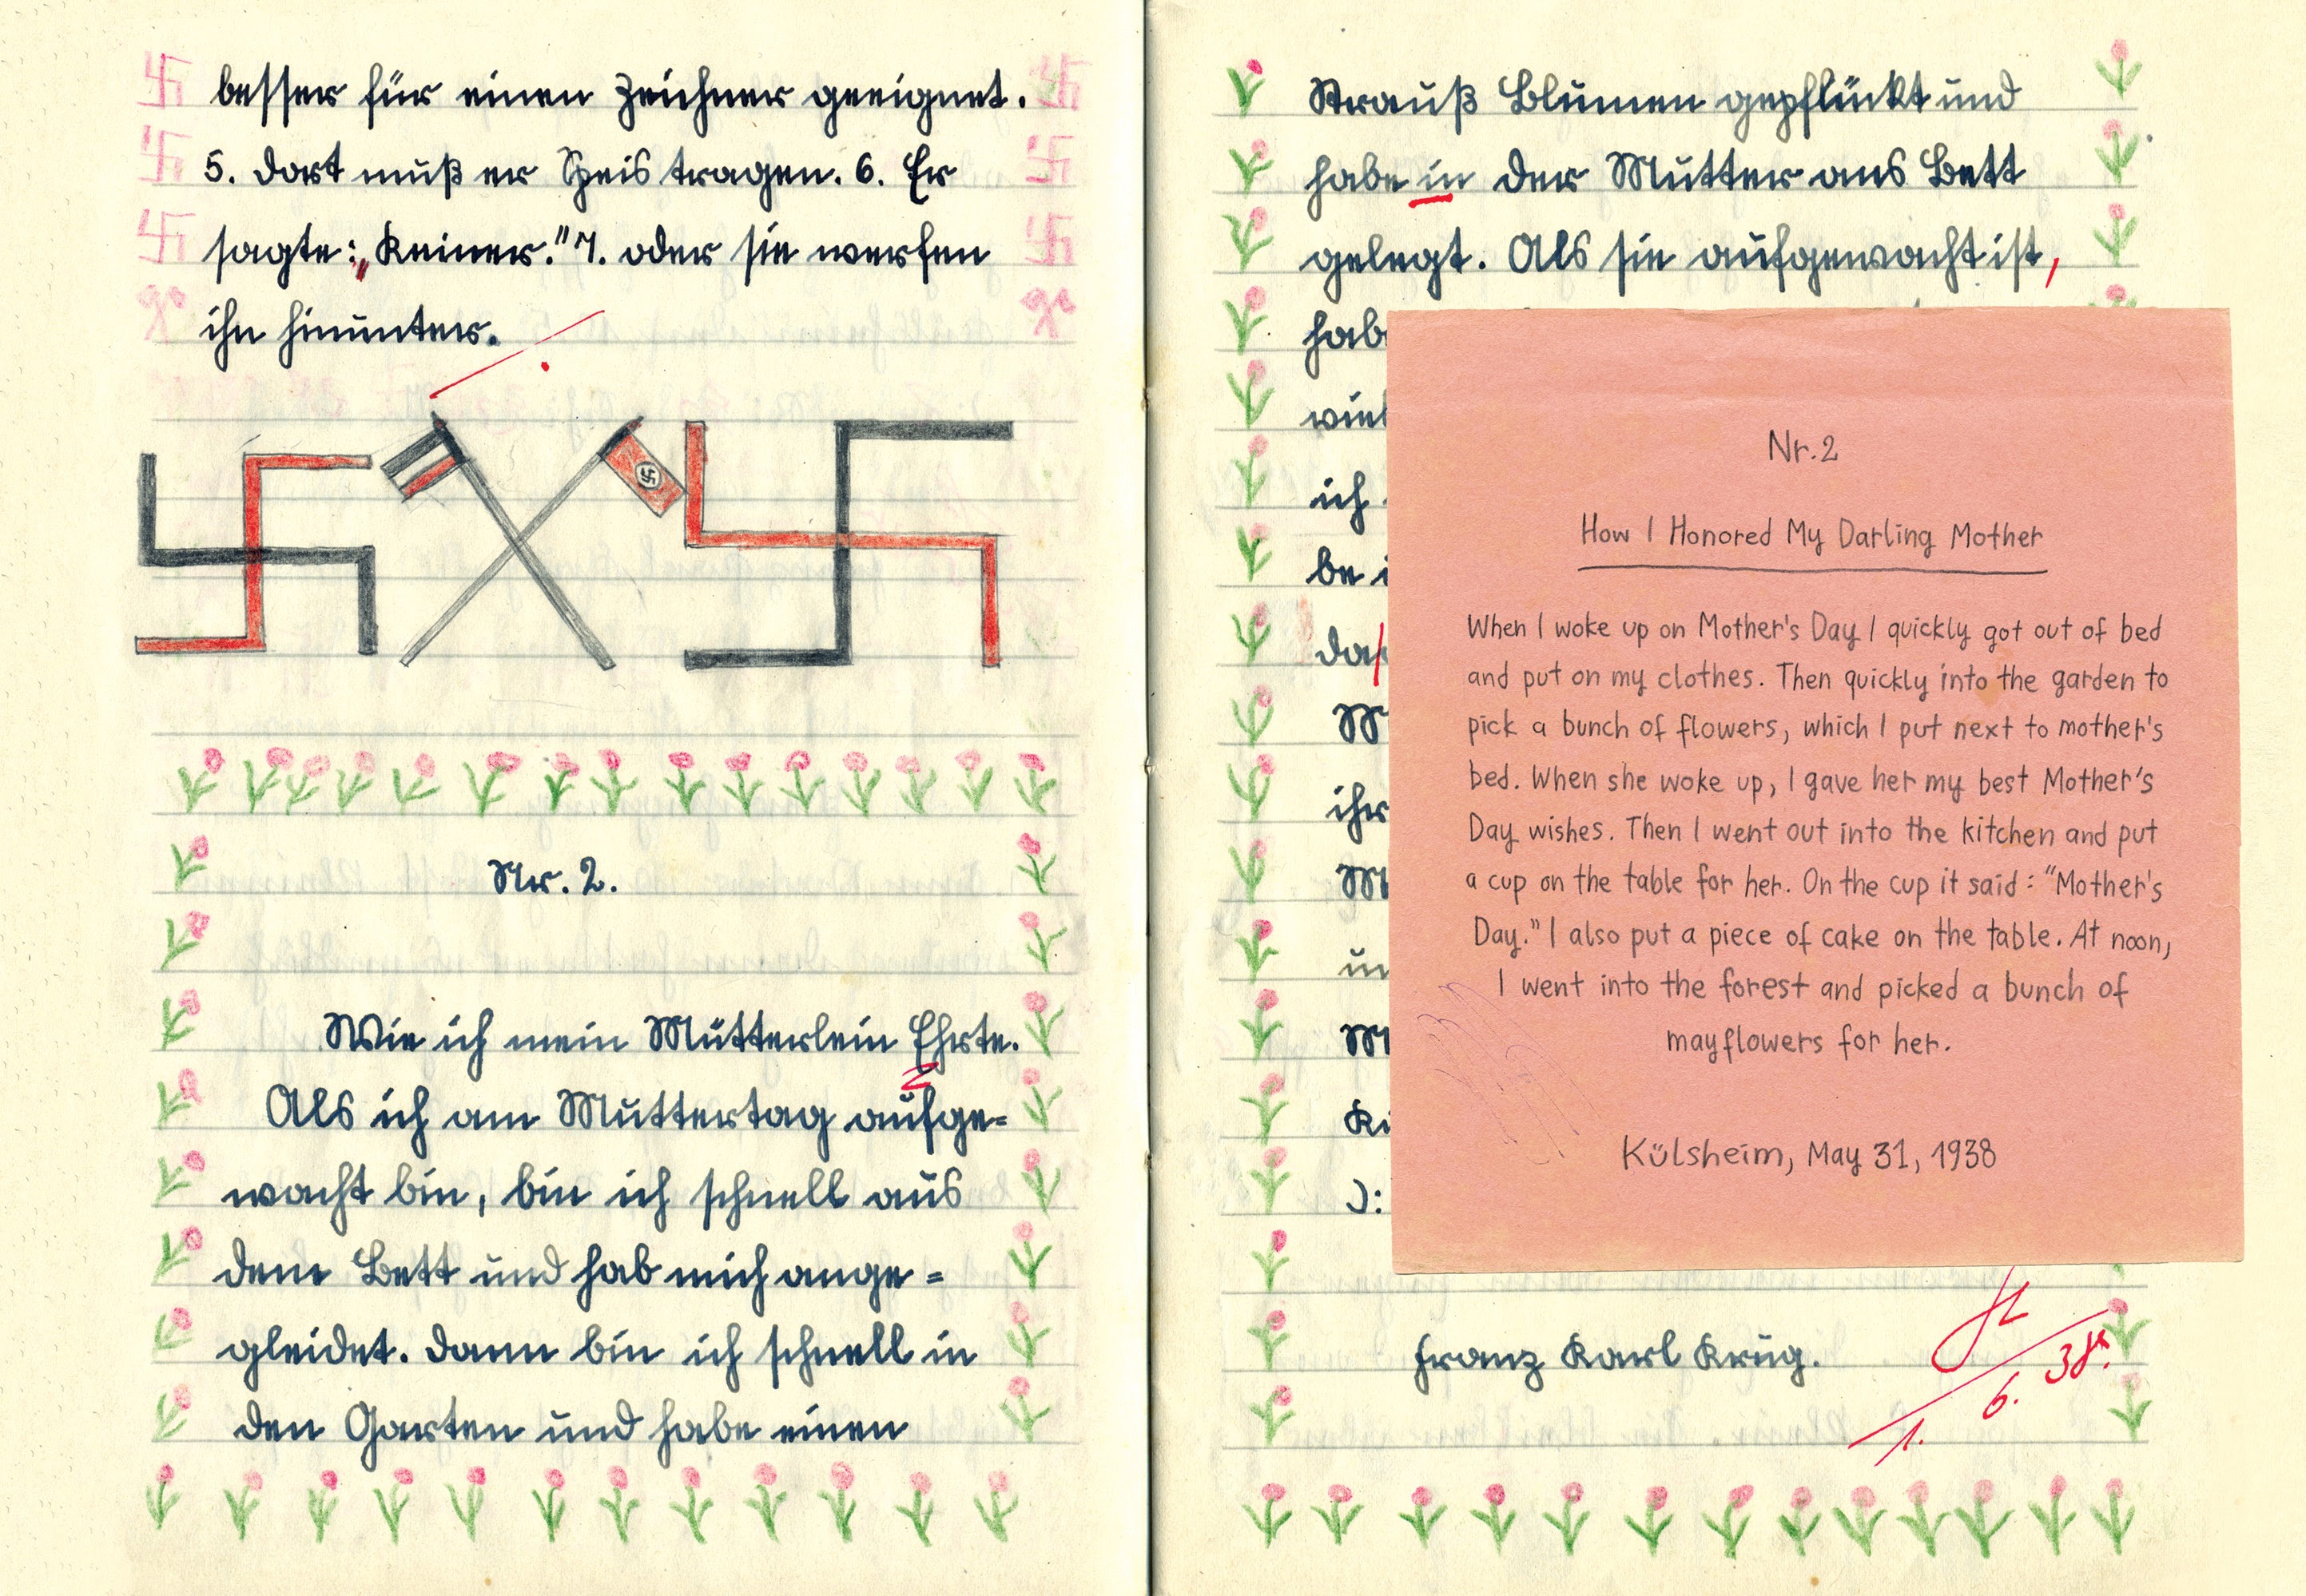 besser für einen Zeichner geeignet.
5. dort muß er Speis tragen. 6. Er
sagte: „Keiner." 7. oder sie werfen
ihn hinunter.
Nr. 2.
Wie ich mein Mütterlein Ehrte.
Als ich am Muttertag aufge=
wacht bin, bin ich schnell aus
dem Bett und hab mich ange=
gleidet. Dann bin ich schnell in
den Garten und habe einen
Strauß Blumen gepflückt und
habe in der Mutter ans Bett
gelegt. Als sie aufgewacht ist,
hab
ich
be
ihr
Franz Karl Krug.
1. 6. 38.
Nr. 2
How I Honored My Darling Mother
When I woke up on Mother's Day I quickly got out of bed
and put on my clothes. Then quickly into the garden to
pick a bunch of flowers, which I put next to mother's
bed. When she woke up, I gave her my best Mother's
Day wishes. Then I went out into the kitchen and put
a cup on the table for her. On the cup it said: "Mother's
Day." I also put a piece of cake on the table. At noon,
I went into the forest and picked a bunch of
mayflowers for her.
Külsheim, May 31, 1938